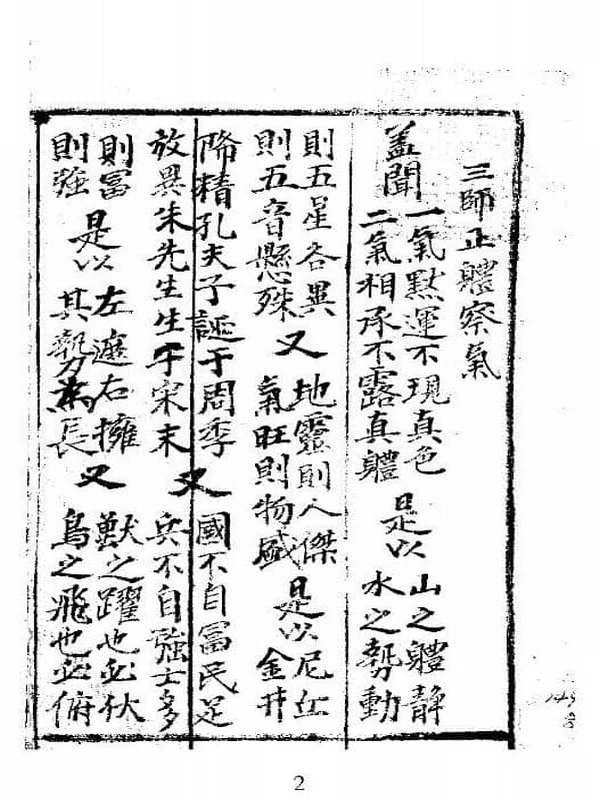 三師正軆察氣
盖聞
一氣黙運不現真色
二氣相承不露真軆
是以
山之軆静
水之勢動
則五星各異
則五音懸殊
又
地靈則人傑
氣旺則物盛
是以
尼丘
金井
降精孔夫子誕于周季
放異朱先生生于宋末
又
國不自冨民足
兵不自強士多
則冨
則強
是以
左遮右擁
其勢為長
又
獸之躍也必伏
鳥之飛也必俯
2